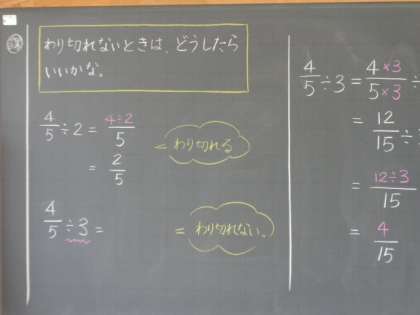 課
わり切れないときは、どうしたら
いいかな。
4/5÷2 = 4÷2/5
わり切れる
= 2/5
4/5÷3 =
= わり切れない。
4/5÷3 = 4×3/5×3 ÷
= 12/15 ÷
= 12÷3/15
= 4/15